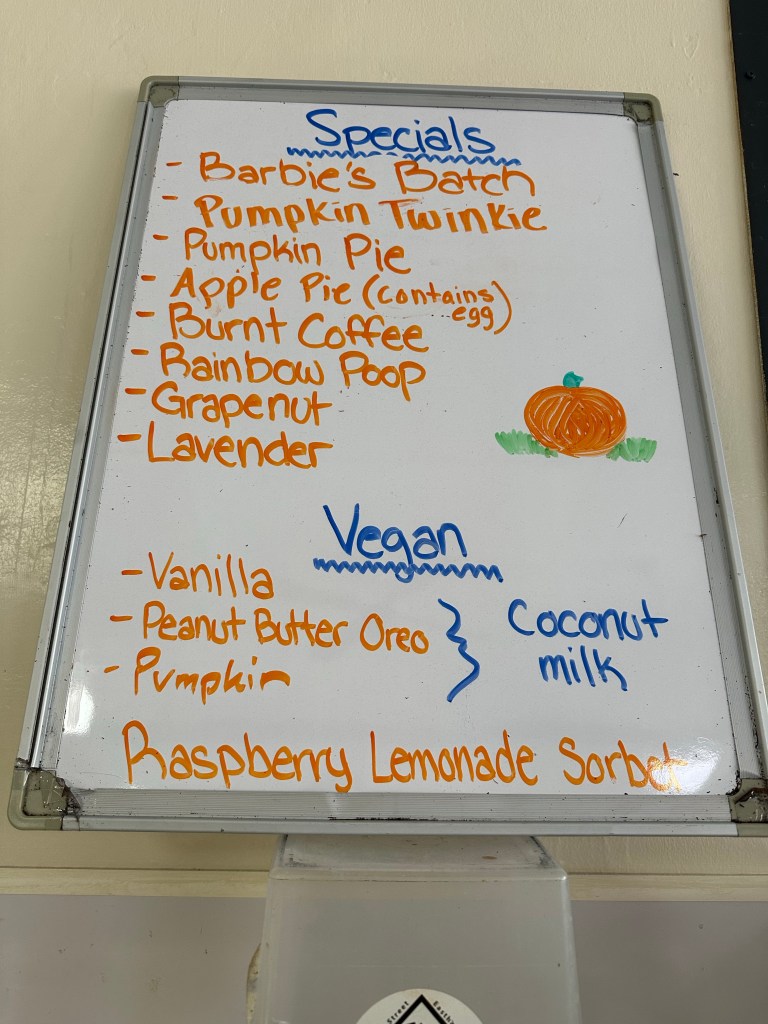 Specials
- Barbie's Batch
- Pumpkin Twinkie
- Pumpkin Pie
- Apple Pie (contains
egg)
- Burnt Coffee
- Rainbow Poop
- Grapenut
- Lavender
Vegan
- Vanilla
- Peanut Butter Oreo
- Pumpkin
Coconut
milk
Raspberry Lemonade Sorbet
Street